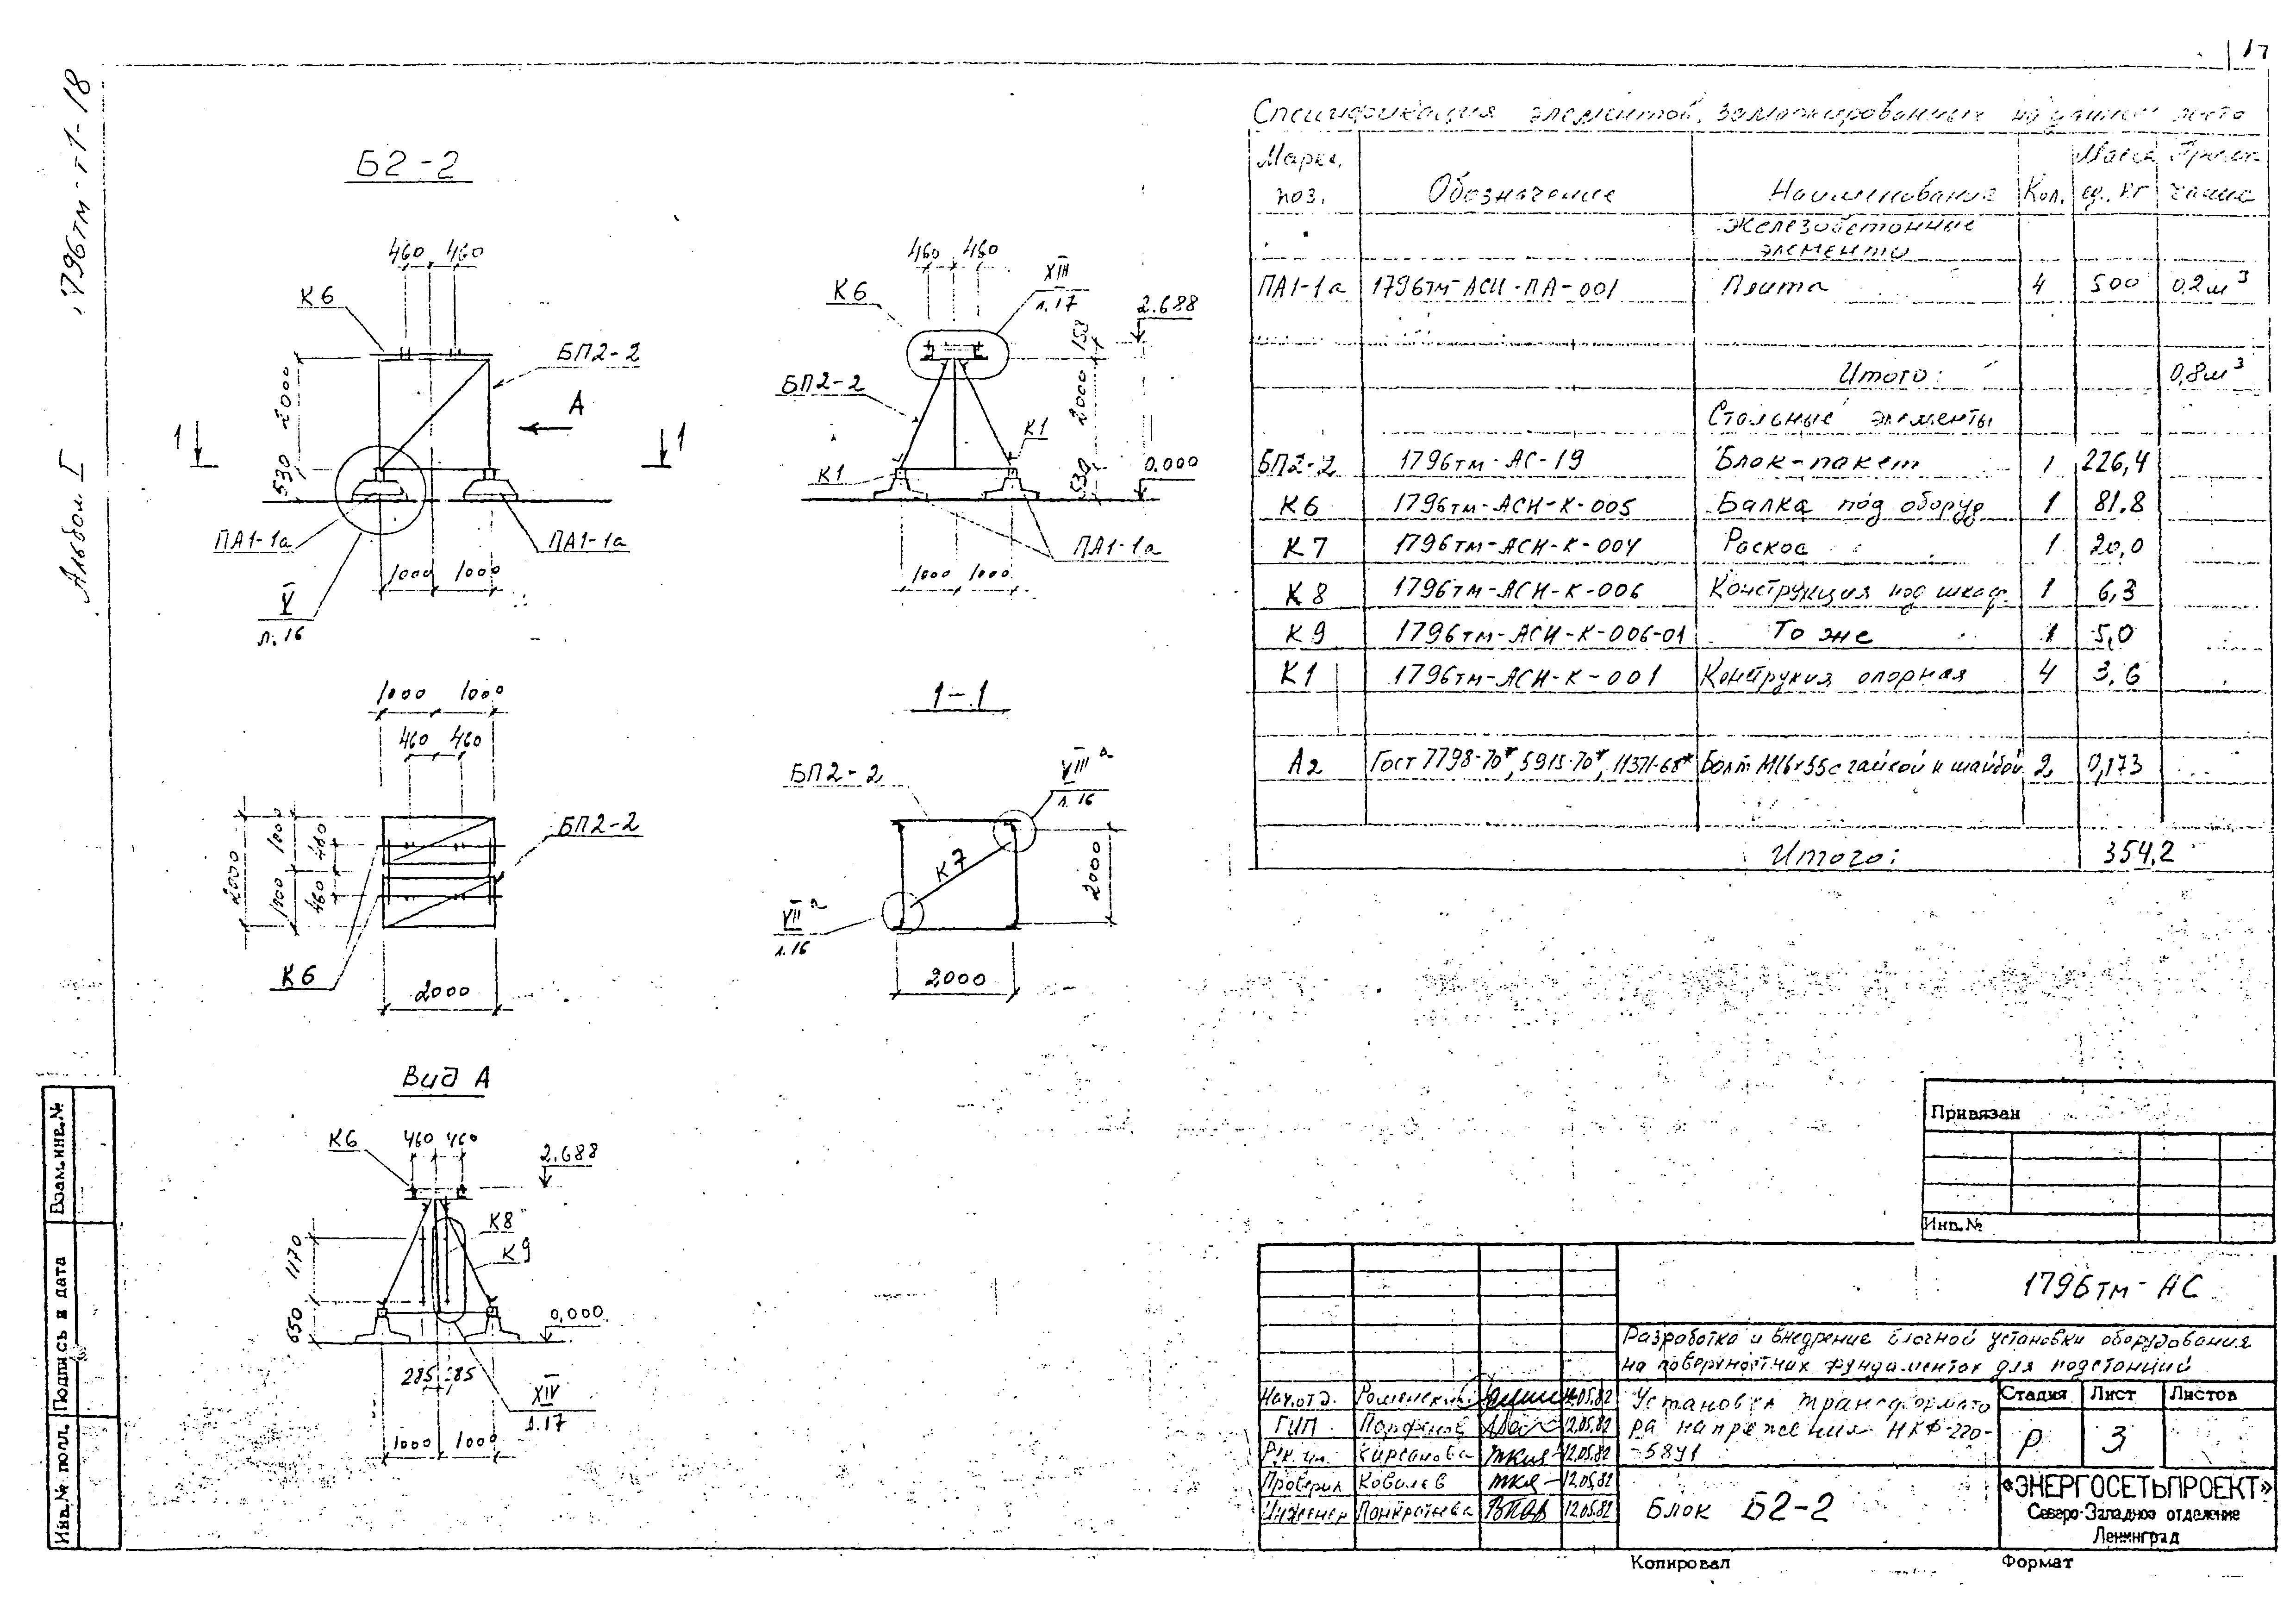 17
1796тм-т1-18
Альбом I
Б2-2
460 460
К6
БП2-2
А
2000
530
1 1
ПА1-1а
ПА1-1а
1000 1000
V
л.16
460 460
К6
XIII
л.17
2.688
158
БП2-2
2000
К1
К1
530
0.000
ПА1-1а
1000 1000
1000 1000
460 460
БП2-2
2000
1000
1000
460
460
К6
2000
1-1
БП2-2
VIII а
л.16
К7
2000
VII а
л.16
2000
Вид А
К6
460 460
2.688
К8
К9
1170
650
0,000
285 285
XIV
л.17
1000 1000
Спецификация элементов, замаркированных на данном листе
Марка, поз. Обозначение Наименование Кол. Масса ед., кг Примечание
Железобетонные элементы
ПА1-1а 1796тм-АСИ-ПА-001 Плита 4 500 0,2м³
Итого: 0,8м³
Стальные элементы
БП2-2 1796тм-АС-19 Блок-пакет 1 226,4
К6 1796тм-АСИ-К-005 Балка под оборуд 1 81.8
К7 1796тм-АСИ-К-004 Раскос 1 20,0
К8 1796тм-АСИ-К-006 Конструкция под шкаф. 1 6,3
К9 1796тм-АСИ-К-006-01 То же 1 5,0
К1 1796тм-АСИ-К-001 Конструкия опорная 4 3,6
А2 Гост 7798-70*, 5915-70*, 11371-68* Болт М16х55 с гайкой и шайбой 2 0,173
Итого: 354,2
Привязан
Инв.№
1796тм-АС
Разработка и внедрение блочной установки оборудования
на поверхностных фундаментах для подстанций
Нач.отд. Роменский 12.05.82
ГИП Парфенов 12.05.82
Рук. гр. Кирсанова 12.05.82
Проверил Ковалев 12.05.82
Инженер Панкратьева 12.05.82
Установка трансформато
ра напряжения НКФ-220-
-58У1
Стадия Лист Листов
Р 3
Блок Б2-2
«ЭНЕРГОСЕТЬПРОЕКТ»
Северо-Западное отделение
Ленинград
Копировал Формат
Взам.инв.№
Подпись и дата
Инв.№ подл.